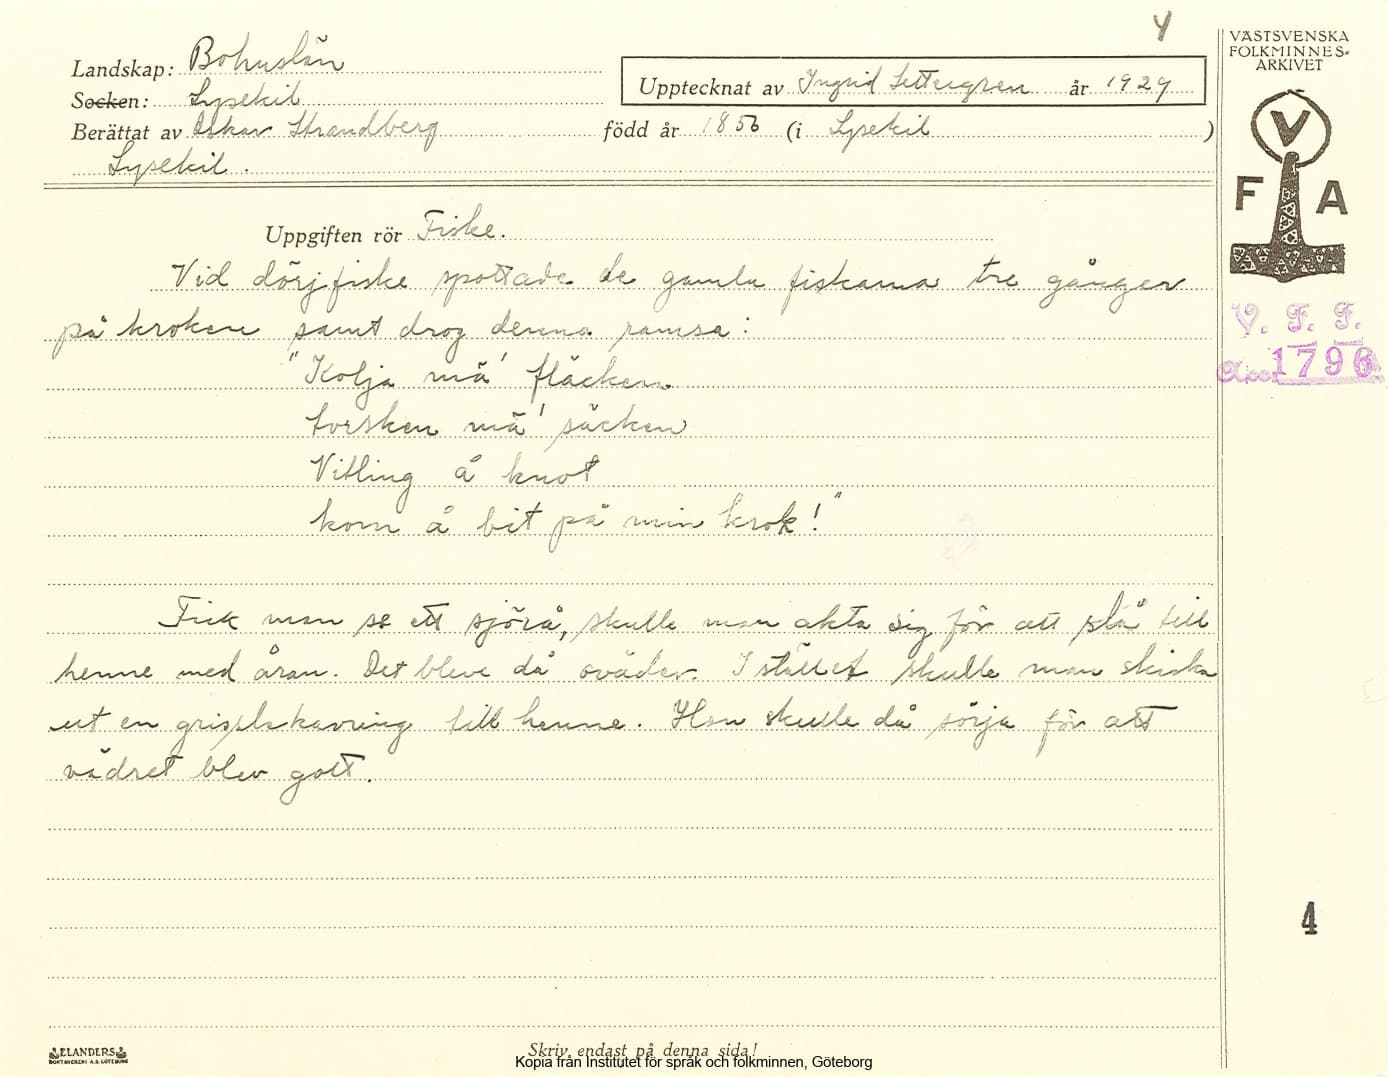 4
VÄSTSVENSKA
FOLKMINNES-
ARKIVET
Landskap: Bohuslän
Upptecknat av Ingrid Settergren år 1929
Socken: Lysekil
Berättat av Oskar Strandberg född år 1856 (i Lysekil )
Lysekil.
V
F A
Uppgiften rör Fiske.
Vid dörjfiske spottade de gamla fiskarna tre gånger
på kroken samt drog denna ramsa:
"Kolja mä' fläcken
torsken mä' säcken
Vitling å knot
kom å bit på min krok!"
V. F. F.
Acc. 1796
Fick man se ett sjörå, skulle man akta sig för att slå till
henne med åran. Det bleve då oväder. I stället skulle man skicka
ut en grisplskavring till henne. Hon skulle då sörja för att
vädret blev gott.
4
ELANDERS
BOKTRYCKERI A.B. GÖTEBORG
Skriv endast på denna sida!
Kopia från Institutet för språk och folkminnen, Göteborg